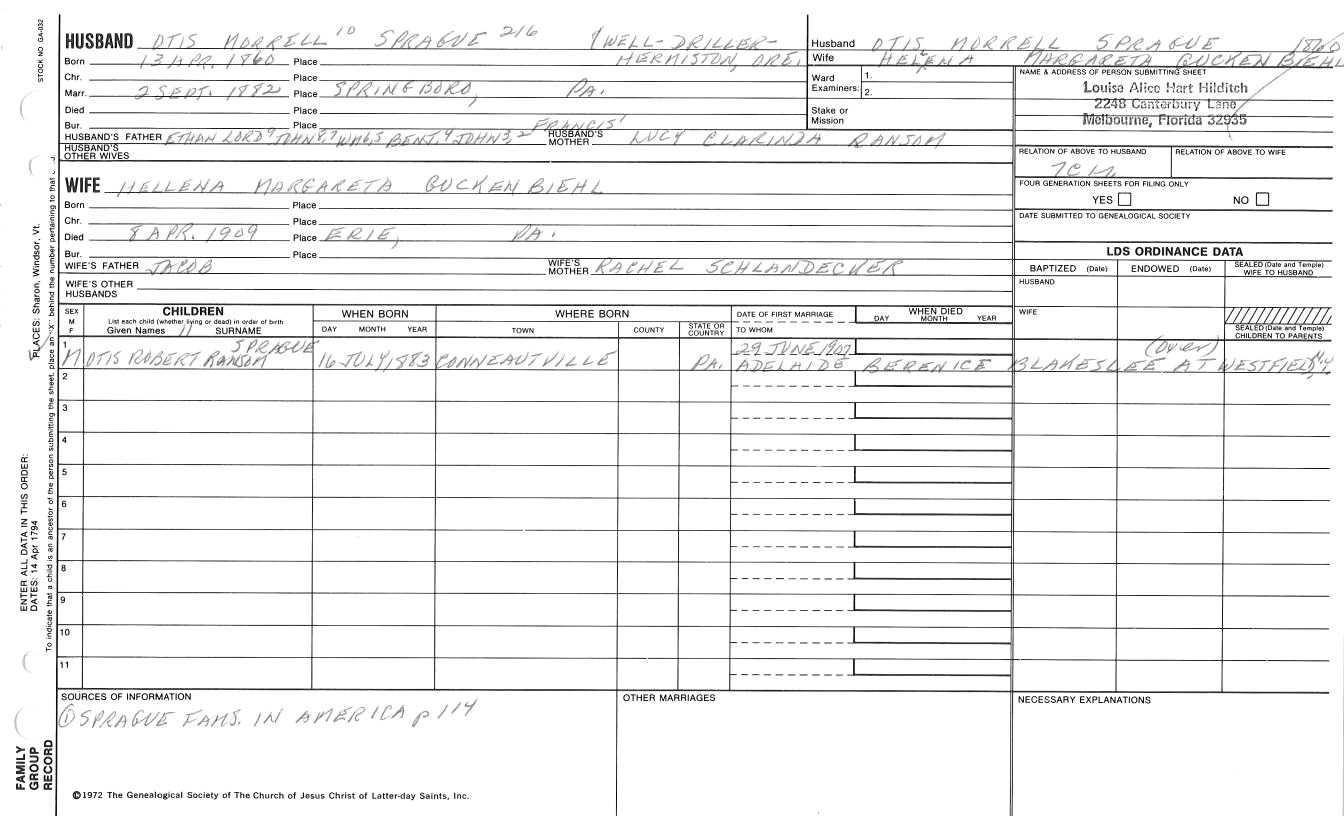 STOCK NO. GA-032
HUSBAND OTIS MORRELL 10 SPRAGUE 216 WELL-DRILLER-
Born 13 APR. 1860 Place HERMISTON, ORE.
Chr. Place
Marr. 2 SEPT. 1882 Place SPRINGBORO, PA.
Died Place
Bur. Place
HUSBAND'S FATHER ETHAN LORD9, JOHN8,7, WM6,5, BENJ.4, JOHN3,2 FRANCIS1 HUSBAND'S MOTHER LUCY CLARINDA RANSOM
HUSBAND'S OTHER WIVES
Husband OTIS MORRELL SPRAGUE 1860
Wife HELENA MARGARETA GUCKENBIEHL
Ward Examiners: 1.
2.
Stake or Mission
NAME & ADDRESS OF PERSON SUBMITTING SHEET
Louise Alice Hart Hilditch
2248 Canterbury Lane
Melbourne, Florida 32935
RELATION OF ABOVE TO HUSBAND RELATION OF ABOVE TO WIFE
FOUR GENERATION SHEETS FOR FILING ONLY
YES NO
DATE SUBMITTED TO GENEALOGICAL SOCIETY
WIFE HELLENA MARGARETA GUCKENBIEHL
Born Place
Chr. Place
Died 8 APR. 1909 Place ERIE, PA.
Bur. Place
WIFE'S FATHER JACOB WIFE'S MOTHER RACHEL SCHLANDECKER
WIFE'S OTHER HUSBANDS
LDS ORDINANCE DATA
BAPTIZED (Date) ENDOWED (Date) SEALED (Date and Temple) WIFE TO HUSBAND
HUSBAND
WIFE
SEALED (Date and Temple) CHILDREN TO PARENTS
SEX M F CHILDREN WHEN BORN WHERE BORN DATE OF FIRST MARRIAGE WHEN DIED
List each child (whether living or dead) in order of birth
Given Names 11 SURNAME DAY MONTH YEAR TOWN COUNTY STATE OR COUNTRY TO WHOM DAY MONTH YEAR
SPRAGUE 29 JUNE 1907 (over)
1 M OTIS ROBERT RANSOM 16 JULY, 1883 CONNEAUTVILLE PA. ADELAIDE BERENICE BLAKESLEE AT WESTFIELD, N.Y.
2
3
4
5
6
7
8
9
10
11
SOURCES OF INFORMATION OTHER MARRIAGES NECESSARY EXPLANATIONS
① SPRAGUE FAMS. IN AMERICA p 114
©1972 The Genealogical Society of The Church of Jesus Christ of Latter-day Saints, Inc.
FAMILY GROUP RECORD
ENTER ALL DATA IN THIS ORDER:
DATES: 14 Apr 1794
PLACES: Sharon, Windsor, Vt.
To indicate that a child is an ancestor of the person submitting the sheet, place an "X" behind the number pertaining to that